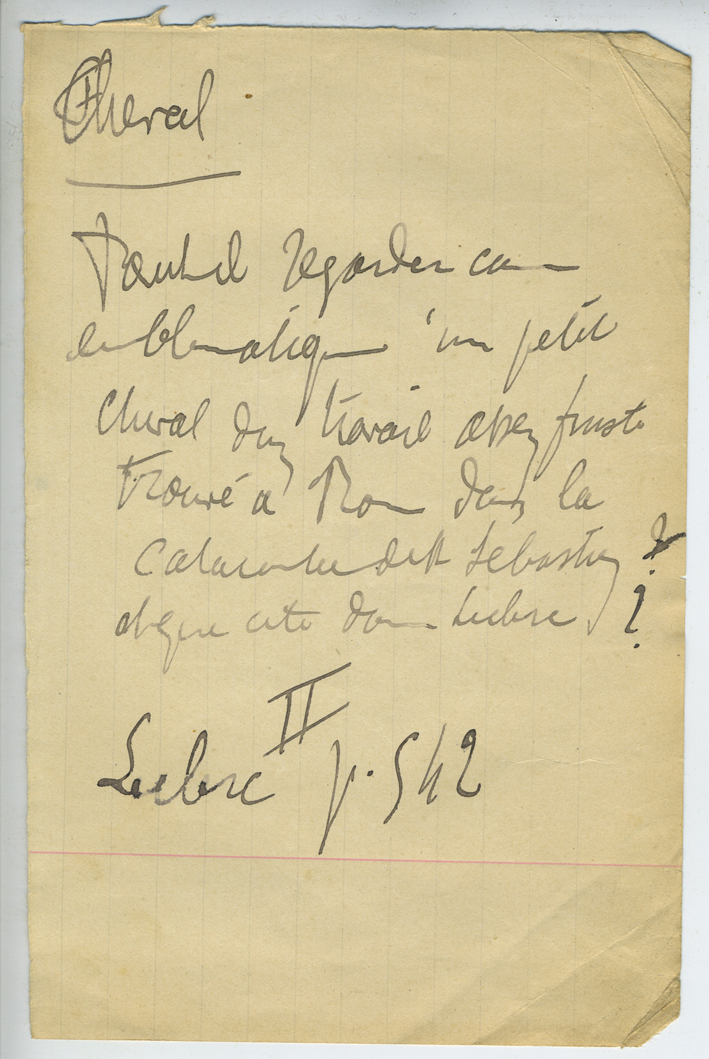 Cheval
Faut-il regarder comme
emblématique un petit
cheval d'un travail assez fruste
trouvé à Rome dans la
Catacombe de St Sébastien ?
cité dans Leclerc ?
Leclerc II p. 542